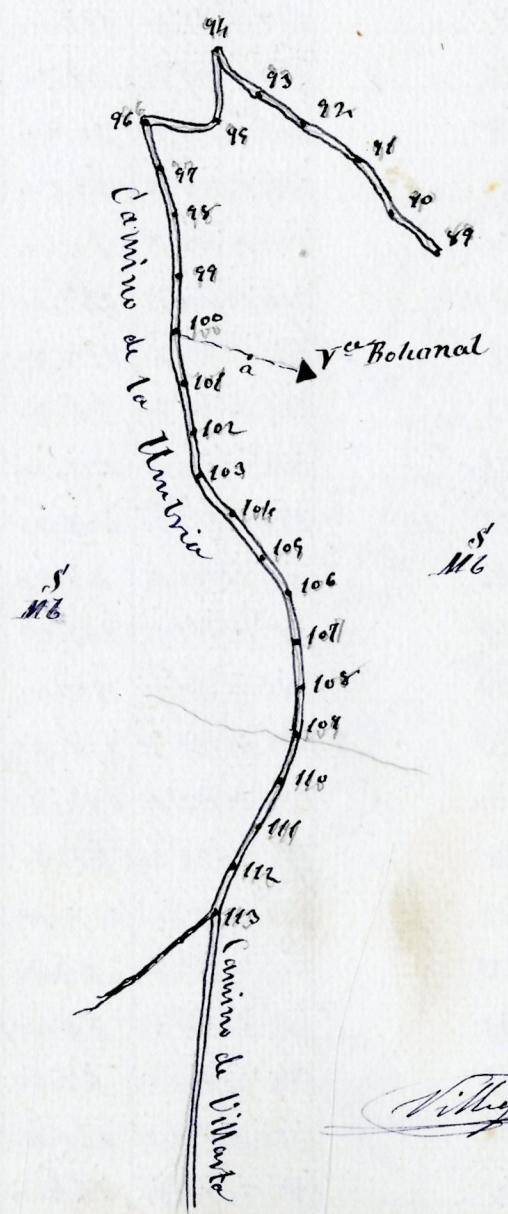 94
93
92
91
90
89
96
95
97
98
99
100
a
Vce Bohonal
101
102
103
104
105
106
107
108
109
110
111
112
113
Camino de la Umbria
S
Mb
S
Mb
Camino de Villarta